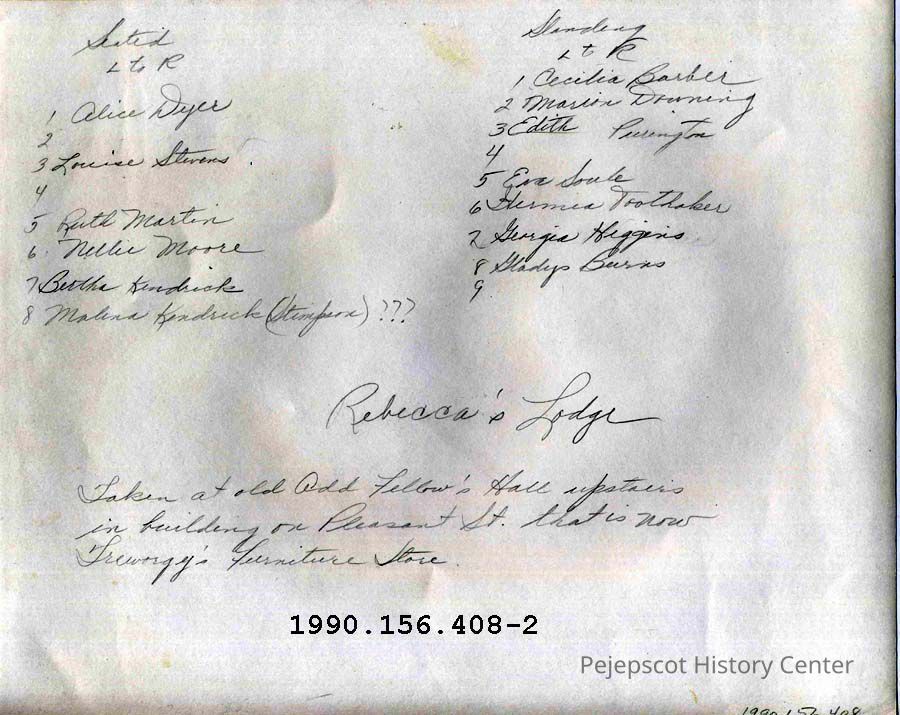 Seated
L to R
1 Alice Dyer
2
3 Louise Stevens
4
5 Ruth Martin
6. Nellie Moore
7 Bertha Kendrick
8 Malena Kendrick (Stimpson) ???
Standing
L to R
1 Cecilia Barber
2 Marion Downing
3 Edith Purington
4
5 Eva Soule
6 Hermia Toothaker
7 Georgia Higgins
8 Gladys Burns
9
Rebecca's Lodge
Taken at old Odd Fellow's Hall upstairs
in building on Pleasant St. that is now
Treworgy's Furniture Store.
1990.156.408-2
Pejepscot History Center
1990.156.408